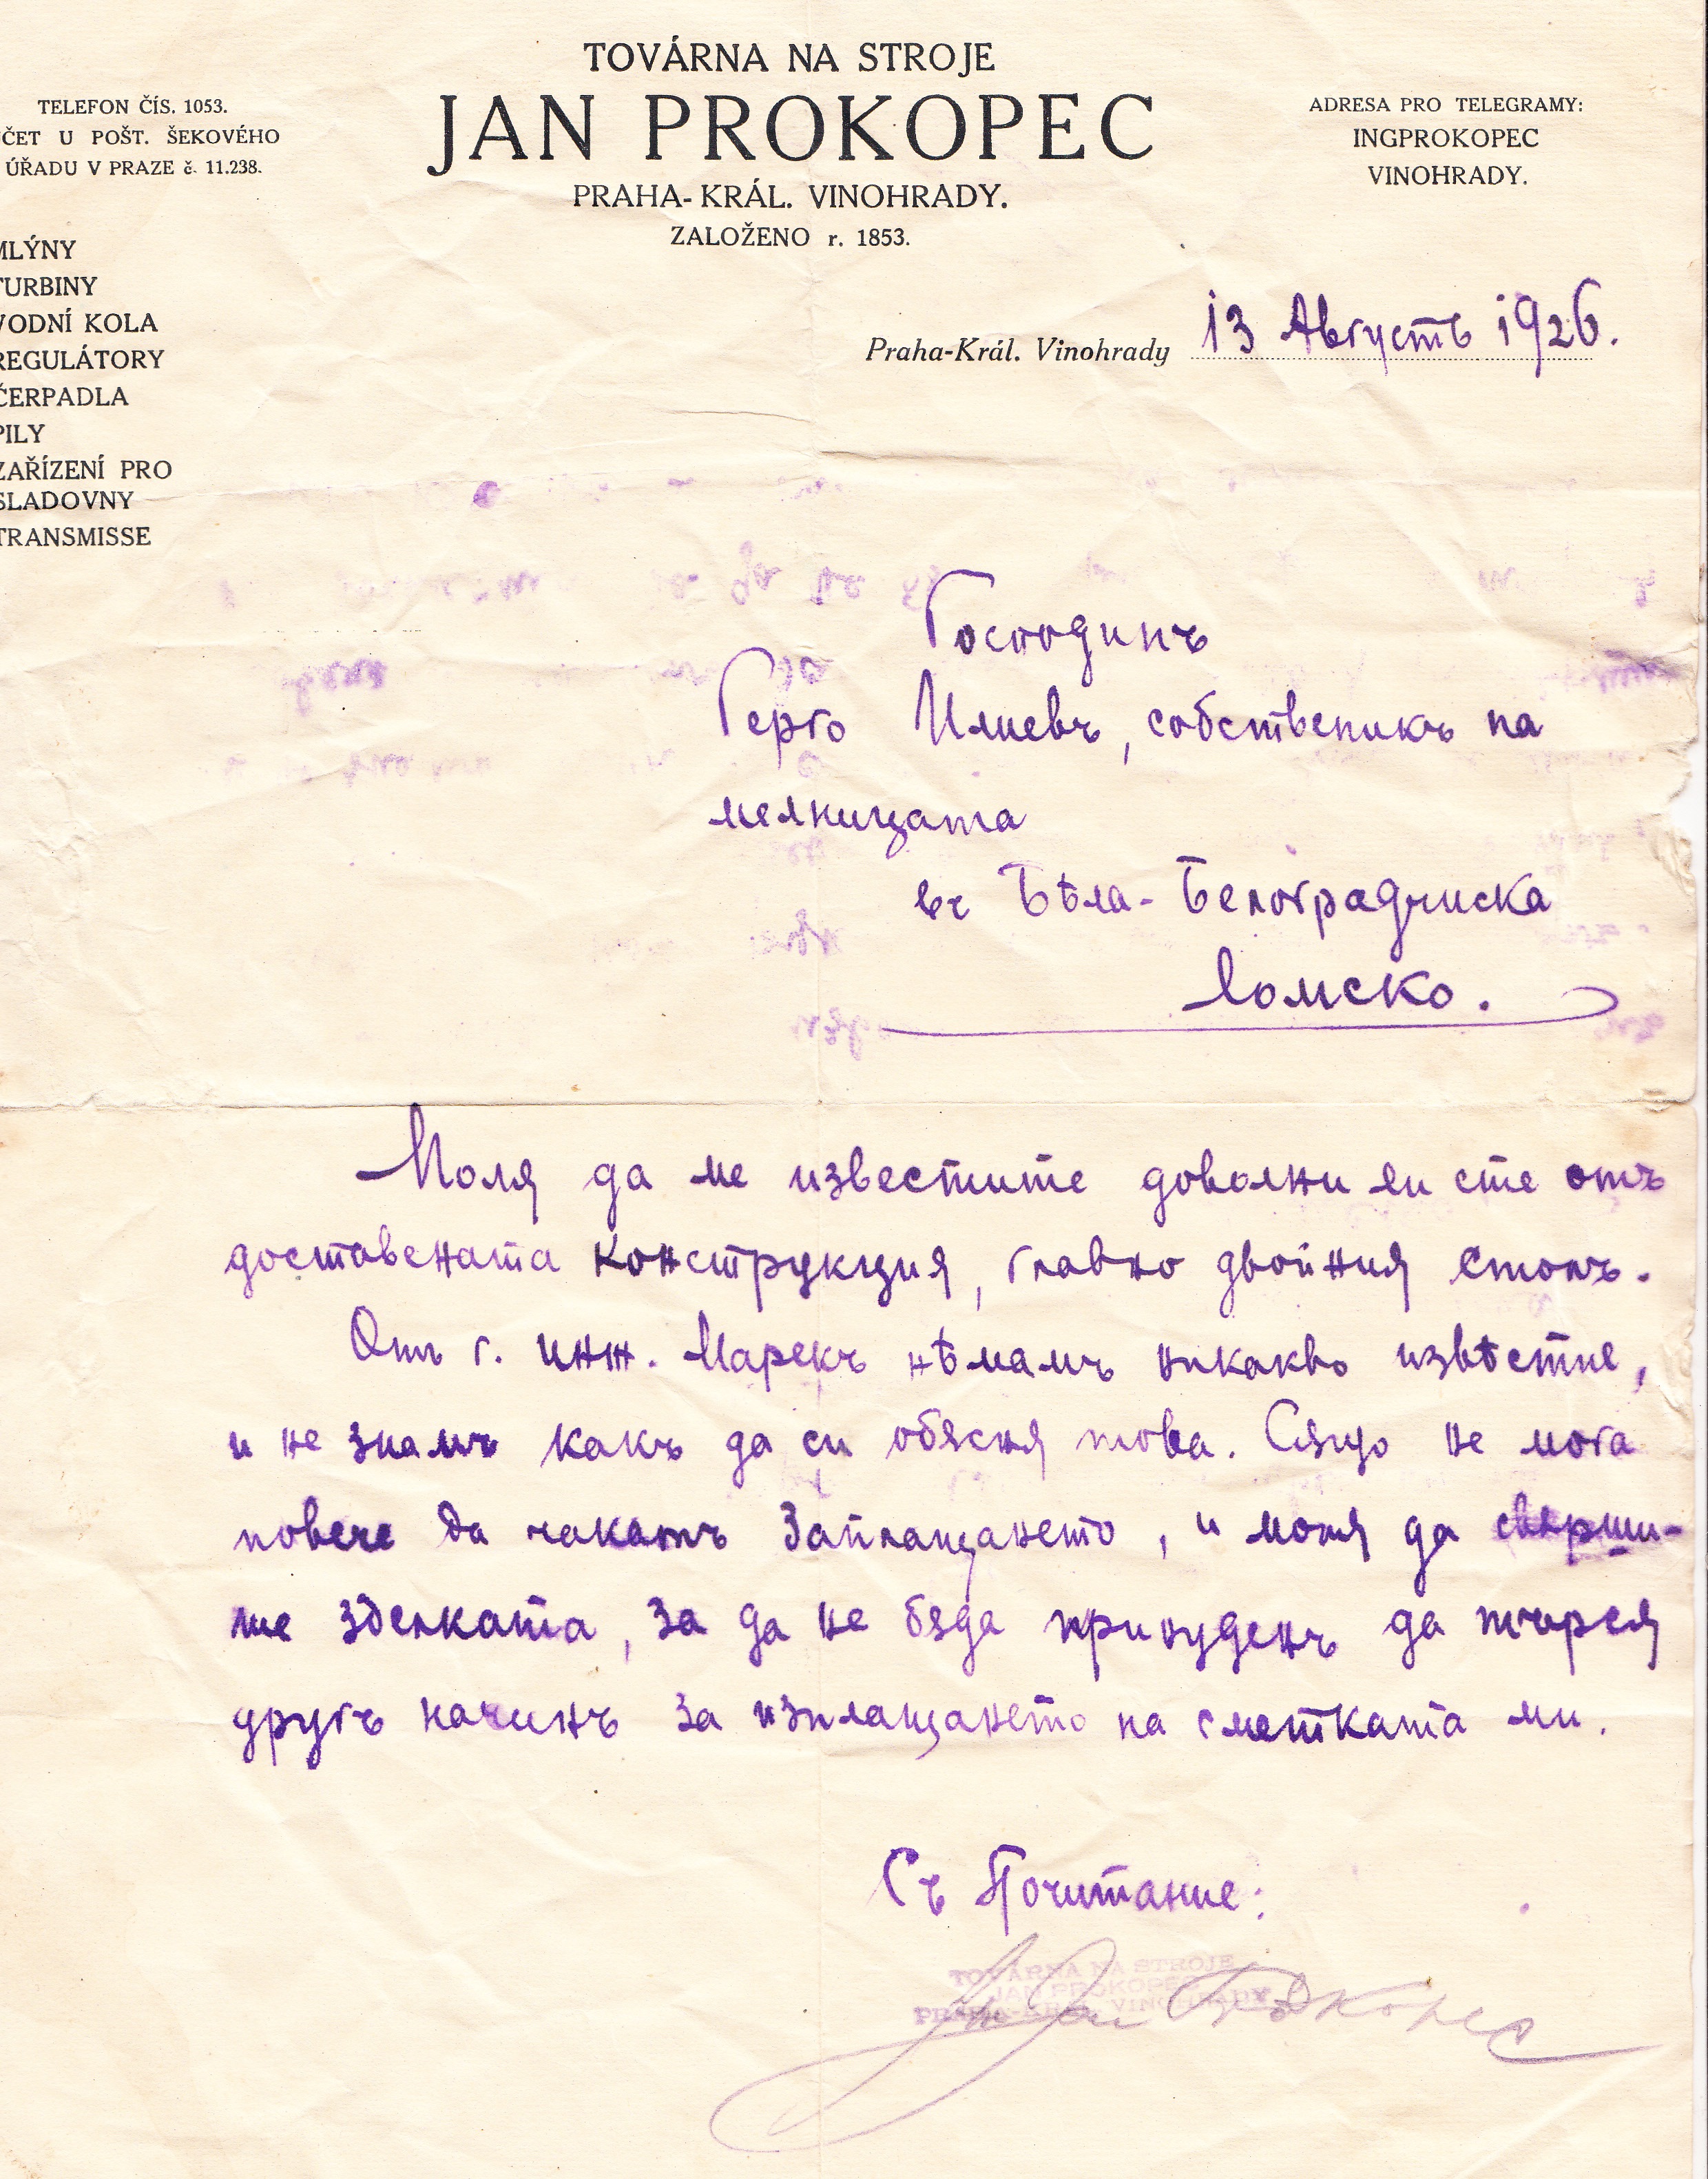 TOVÁRNA NA STROJE
JAN PROKOPEC
PRAHA-KRÁL. VINOHRADY.
ZALOŽENO r. 1853.
TELEFON ČÍS. 1053.
ČET U POŠT. ŠEKOVÉHO
ÚŘADU V PRAZE č. 11.238.
ADRESA PRO TELEGRAMY:
INGPROKOPEC
VINOHRADY.
MLÝNY
TURBINY
VODNÍ KOLA
REGULÁTORY
ČERPADLA
PILY
ZAŘÍZENÍ PRO
SLADOVNY
TRANSMISSE
Praha-Král. Vinohrady 13 Августъ 1926.
Господинъ
Герго Илиевъ, собственикъ на
мелницата
въ Бѣла-Белоградчиска
Ломско.
Моля да ме известите доволни ли сте отъ
доставената конструкция, главно двойния столъ.
Отъ г. инж. Марекъ нѣмамъ никакво извѣстие,
и не знамъ какъ да си обясня това. Сѫщо не мога
повече да чакамъ заплащането, и моля да свѫрши-
те зделката, за да не бѫда принуденъ да търся
другъ начинъ за изплащането на сметката ми.
Съ Почитание:
TOVÁRNA NA STROJE
JAN PROKOPEC
PRAHA-KRÁL. VINOHRADY
Jan Prokopec